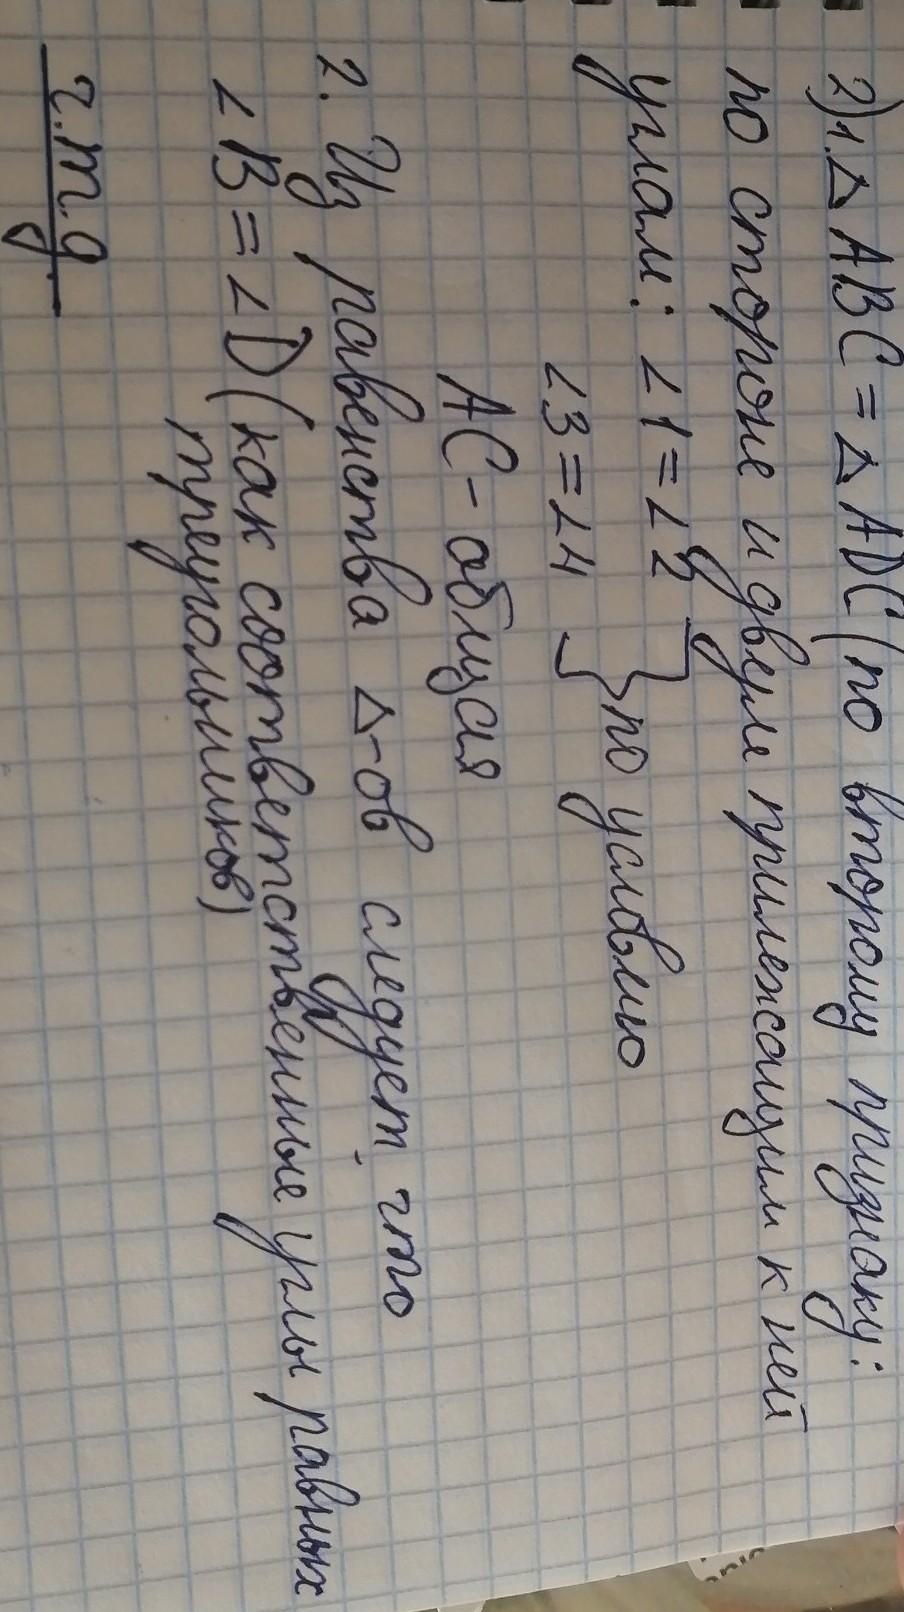 2) 1. Δ ABC = Δ ADC (по второму признаку:
по стороне и двум прилежащим к ней
углам: ∠1 = ∠2 } по условию
∠3 = ∠4
AC - общая
2. Из равенства Δ-ов следует, что
∠B = ∠D (как соответственные углы равных
треугольников)
ч.т.д